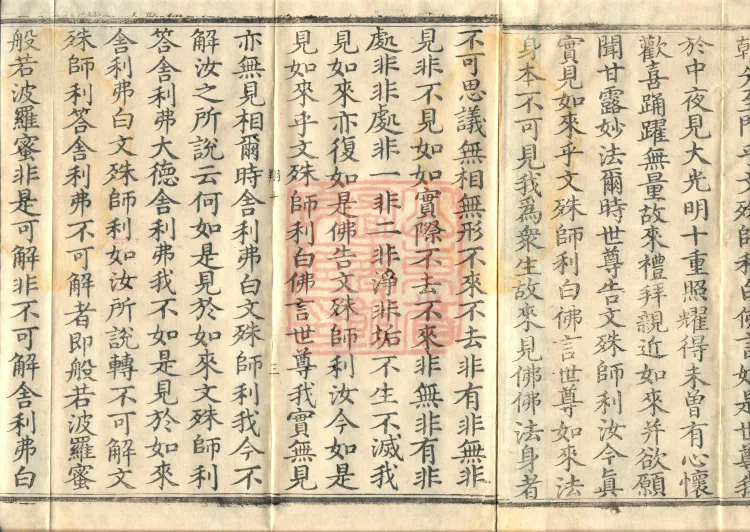 乎文殊師利白佛言如是世尊我
於中夜見大光明十重照耀得未曾有心懷
歡喜踊躍無量故來禮拜親近如來并欲願
聞甘露妙法爾時世尊告文殊師利汝今眞
實見如來乎文殊師利白佛言世尊如來法
身本不可見我爲衆生故來見佛佛法身者
不可思議無相無形不來不去非有非無非
見非不見如如實際不去不來非無非有非
處非非處非一非二非淨非垢不生不滅我
見如來亦復如是佛告文殊師利汝今如是
見如來乎文殊師利白佛言世尊我實無見
翔一 三
亦無見相爾時舍利弗白文殊師利我今不
解汝之所說云何如是見於如來文殊師利
答舍利弗大德舍利弗我不如是見於如來
舍利弗白文殊師利如汝所說轉不可解文
殊師利答舍利弗不可解者即般若波羅蜜
般若波羅蜜非是可解非不可解舍利弗白